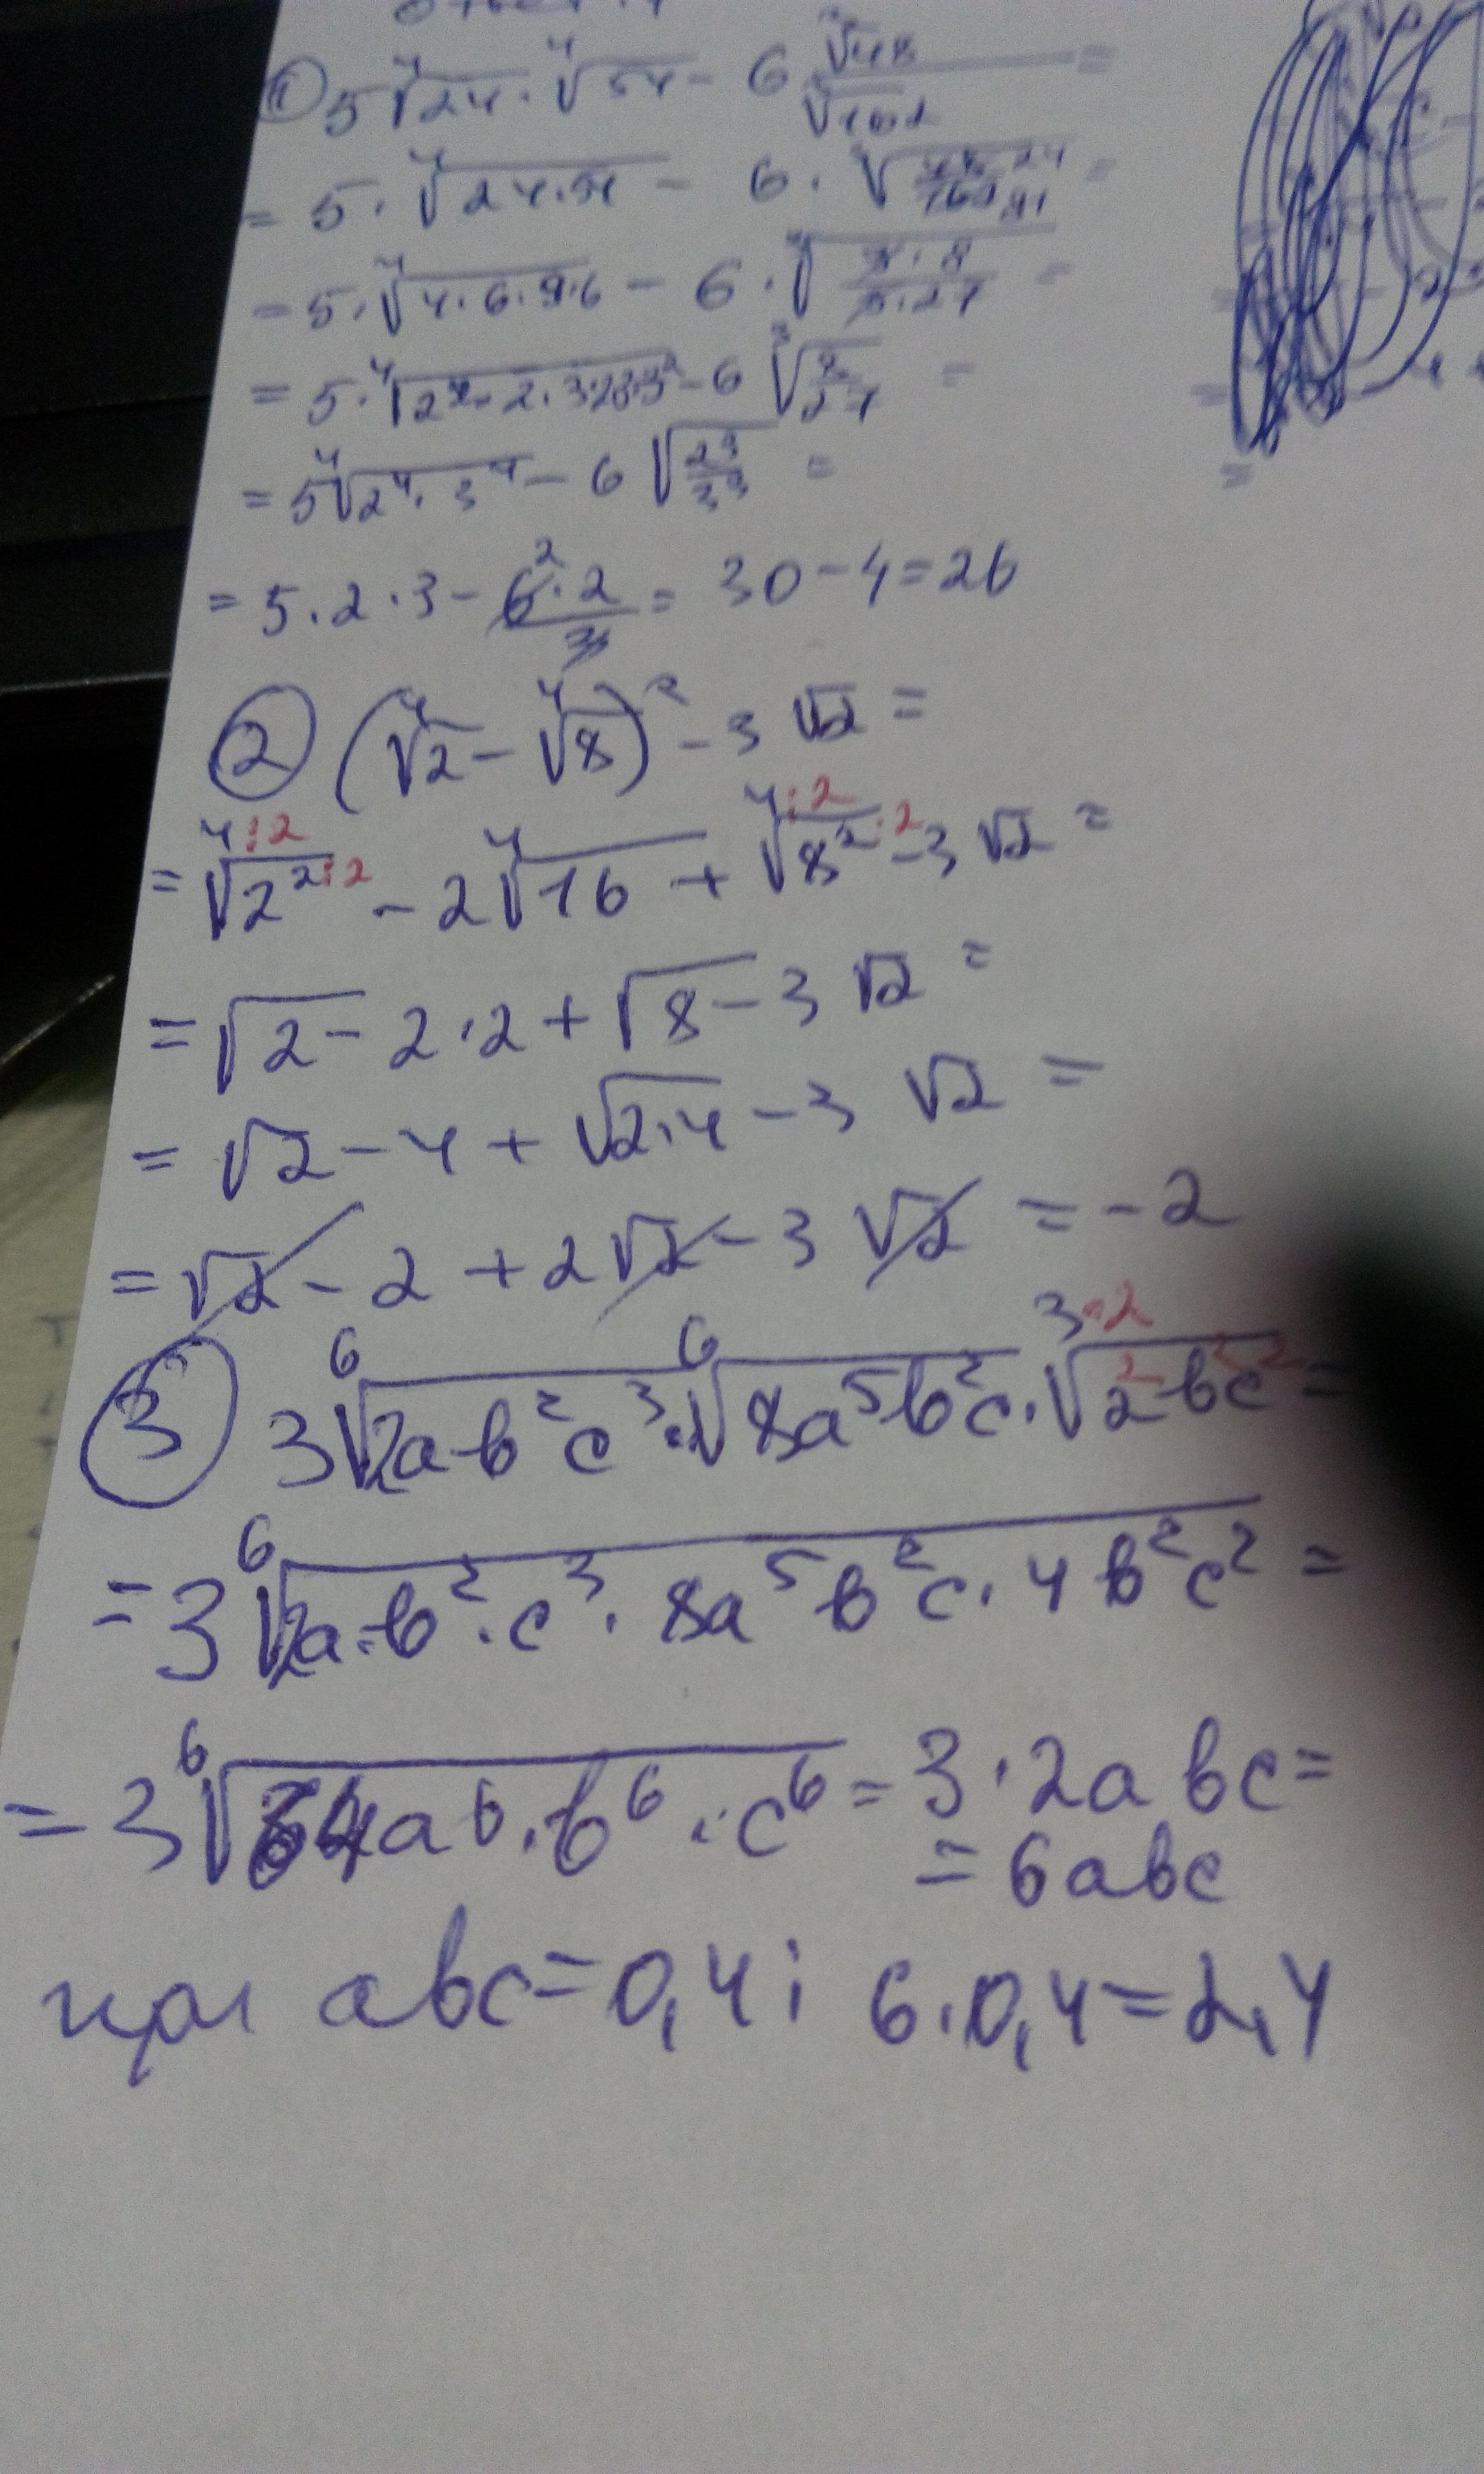 ① 5∜24 · ∜54 - 6 ∛48/∛162 =
= 5 · ∜(24·54) - 6 · ∛(48 24/162 81) =
= 5 · ∜(4·6·9·6) - 6 · ∛(3·8/3·27) =
= 5 · ∜(2²·2·3·2·3·3²) - 6 ∛(8/27) =
= 5∜(2⁴·3⁴) - 6 √(2³/3³) =
= 5·2·3 - 6²·2/3 = 30 - 4 = 26
② (∜2 - ∜8)² - 3 √2 =
= ⁴:²√(2²:²) - 2∜16 + ⁴:²√(8²:²) - 3 √2 =
= √2 - 2·2 + √8 - 3 √2 =
= √2 - 4 + √(2·4) - 3 √2 =
= √2 - 2 + 2√2 - 3 √2 = -2
③ 3 ⁶√(2ab²c³) · ⁶√(8a⁵b²c) · ³·²√(2²b²c²) =
= 3 ⁶√(2a·b²·c³·8a⁵b²c·4b²c²) =
= 3 ⁶√(64a⁶·b⁶·c⁶) = 3·2abc =
= 6abc
при abc = 0,4; 6·0,4 = 2,4